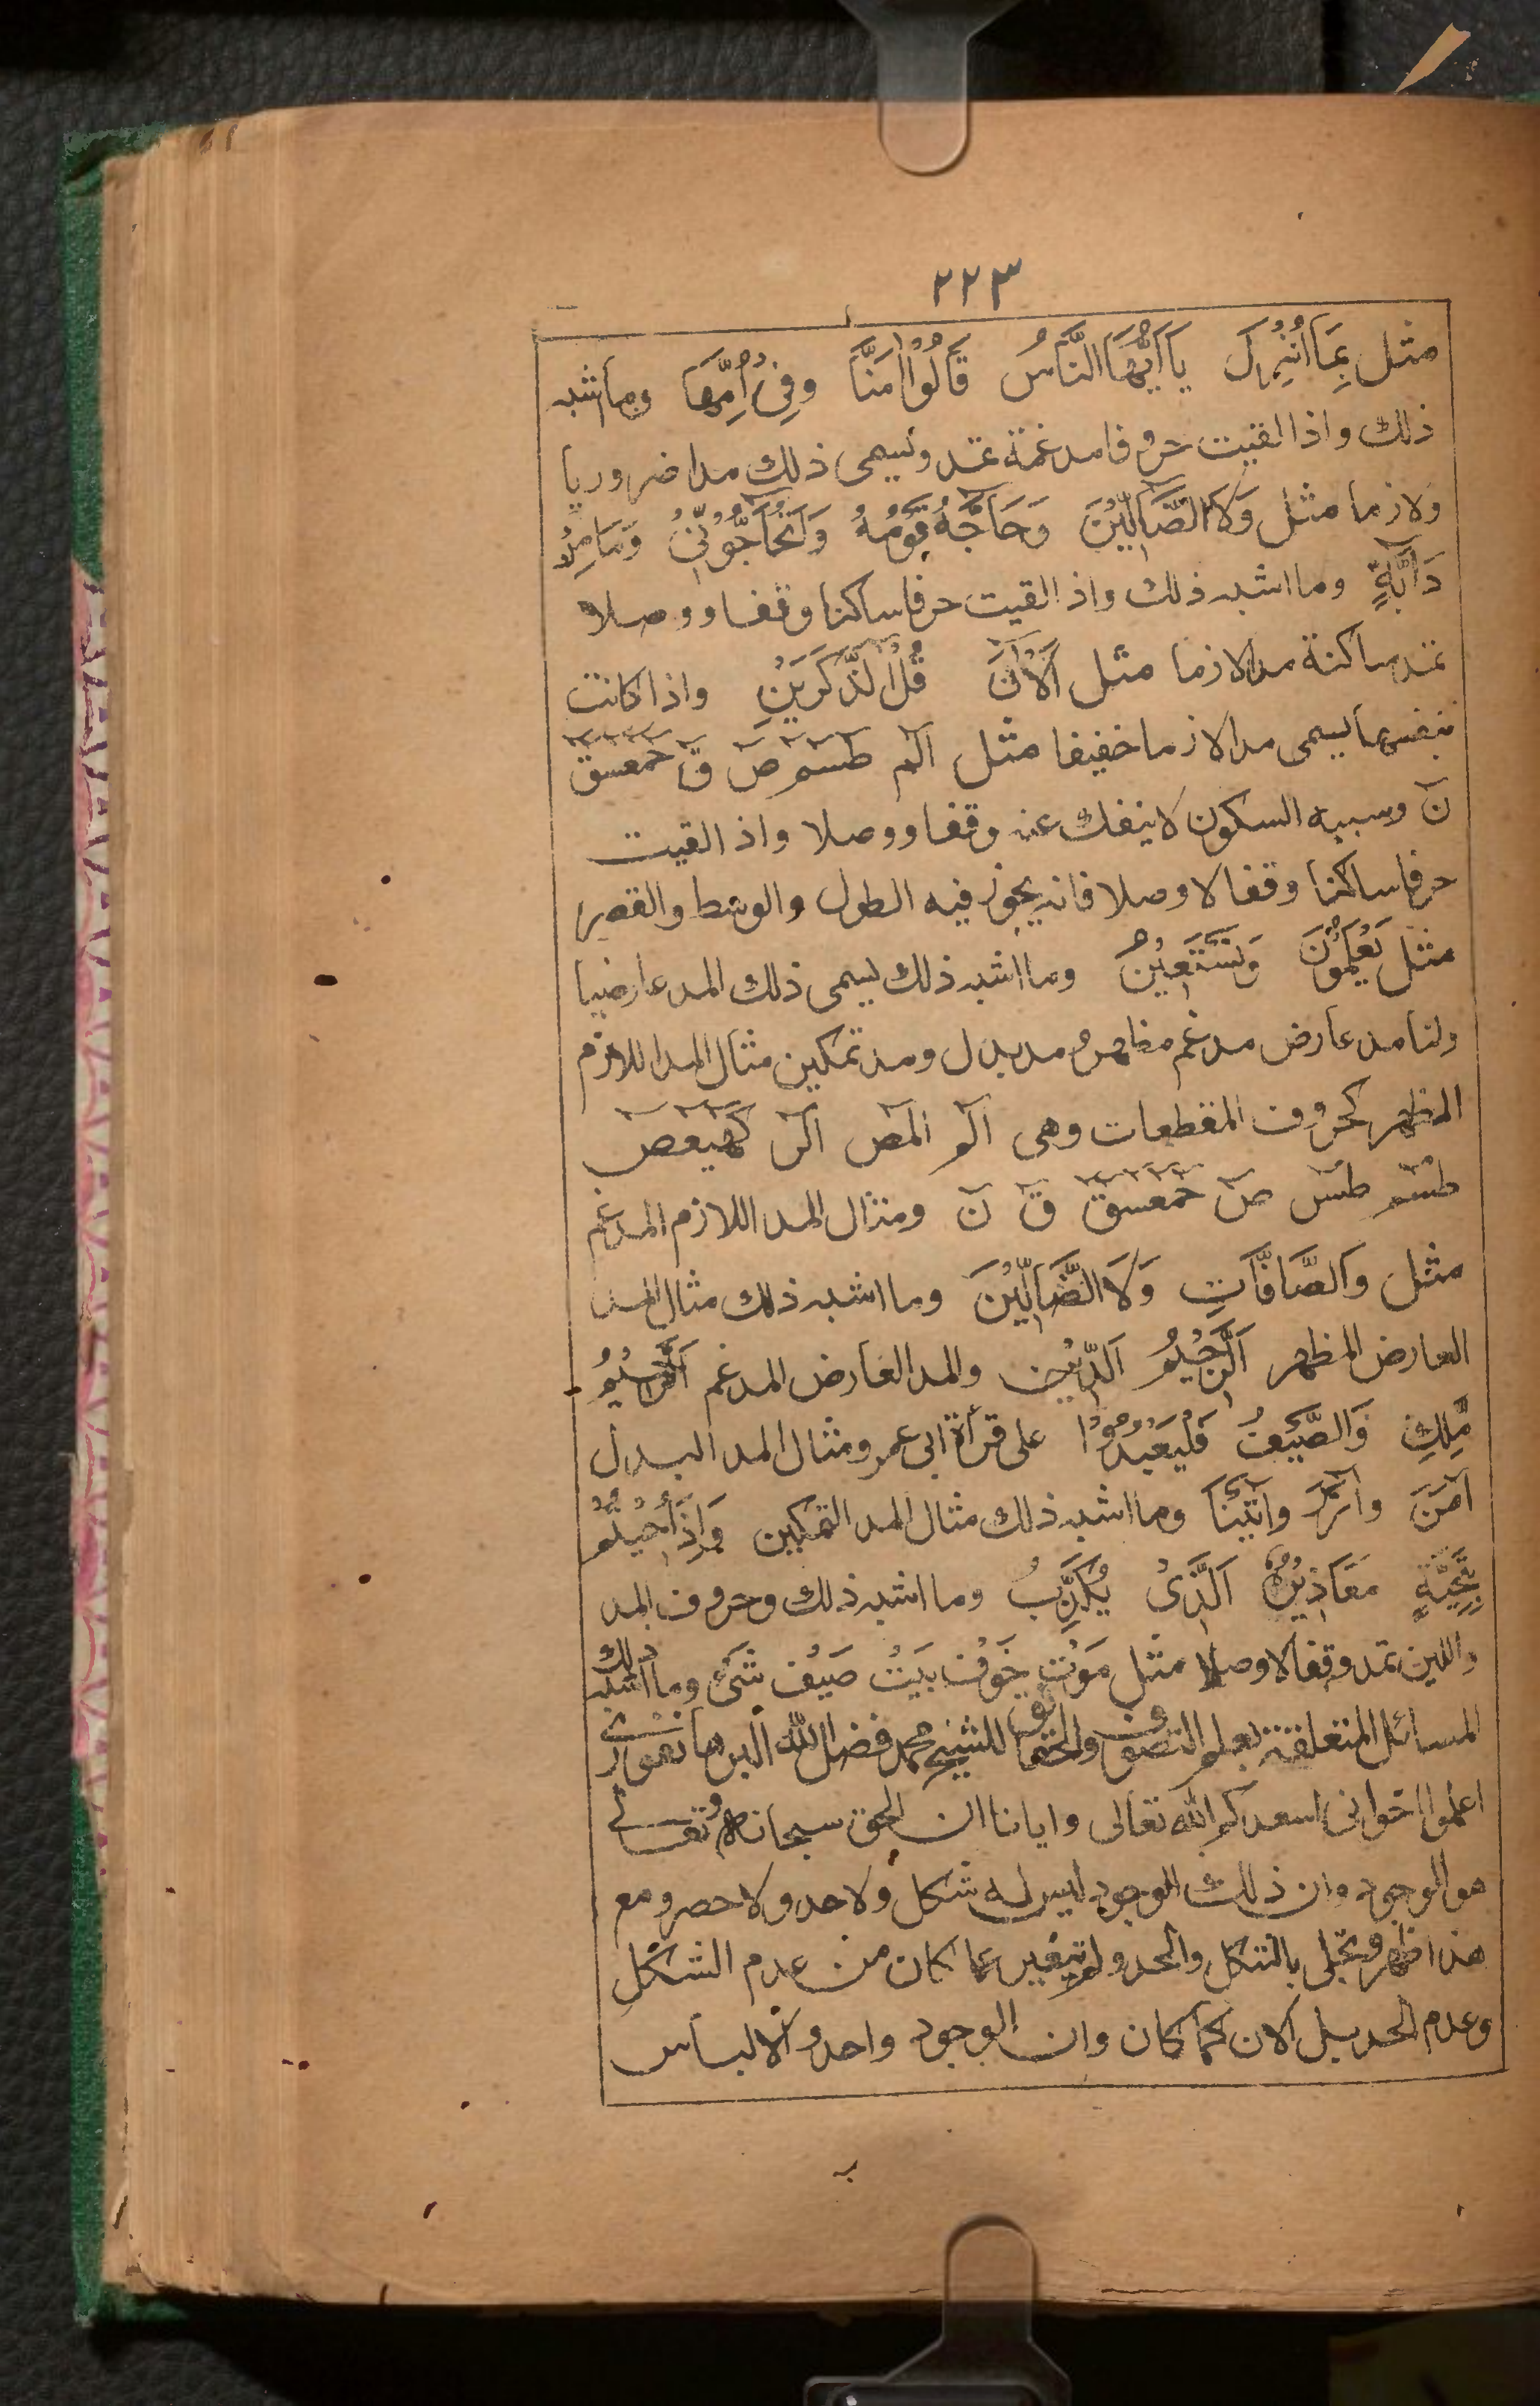 ٢٢٣
مثل بِمَا اُنْزِلَ يَا اَيُّهَا النَّاسُ قَالُوْا اٰمَنَّا وفِىْ اُمِّهَا وما اشبه
ذلك واذا لقيت حروفا مدغمة تمد ويسمى ذلك مدا ضروريا
ولازما مثل وَلَا الضَّالِّيْنَ وَحَاجَّهٗ قَوْمُهٗ وَاَتُحَاجُّوْنِّىْ وَمَا مِنْ
دَآبَّةٍ وما اشبه ذلك واذا لقيت حرفا ساكنا وقفا ووصلا
تمد ساكنة مدا لازما مثل آلْاٰنَ قُلْ آلذَّكَرَيْنِ واذا كانت
بنفسها يسمى مدا لازما خفيفا مثل الٓمٓ طٓسٓمٓ صٓ قٓ حٓمٓعٓسٓقٓ
نٓ وسببه السكون لا ينفك عنه وقفا ووصلا واذا لقيت
حرفا ساكنا وقفا لا وصلا فانه يجوز فيه الطول والوسط والقصر
مثل يَعْلَمُوْنَ وَنَسْتَعِيْنُ وما اشبه ذلك يسمى ذلك المد عارضيا
ولنا مد عارض مدغم مظهر ومد بدل ومد تمكين مثال المد اللازم
المظهر كحروف المقطعات وهى الٓمٓ الٓمٓصٓ الٓرٰ كٓهٰيٰعٓصٓ
طٰسٓمٓ طٰسٓ صٓ حٰمٓعٓسٓقٓ قٓ نٓ ومثال المد اللازم المدغم
مثل وَالصَّافَّاتِ وَلَا الضَّالِّيْنَ وما اشبه ذلك مثال المد
العارض المظهر اَلرَّحِيْمُ اَلدِّيْنِ والمد العارض المدغم اَلرَّحِيْمُ
مَّلِكِ وَالصَّيْفِ فَلْيَعْبُدُوْا على قرأة ابى عمرو مثال المد البدل
اٰمَنَ وآزَرَ وآتَيْنَا وما اشبه ذلك مثال المد التمكين وَاِذَا حُيِّيْتُمْ
بِتَحِيَّةٍ مَعَاذِيْرَهٗ اَلَّذِىْ يُكَذِّبُ وما اشبه ذلك وحروف المد
واللين تمد وقفا لا وصلا مثل مَوْت خَوْف بَيْت صَيْف شَىْءٍ وما اشبه ذلك
المسائل المتعلقة بعلم التصوف والحقائق للشيخ محمد فضل الله البرهانفورى
اعلموا اخوانى اسعدكم الله تعالى وايانا ان الحق سبحانه وتعالى
هو الوجود وان ذلك الوجود ليس له شكل ولا حد ولا حصر ومع
هذا ظهر وتجلى بالشكل والحد ولم يتغير عما كان من عدم الشكل
وعدم الحد بل الآن كما كان وان الوجود واحد والالباس